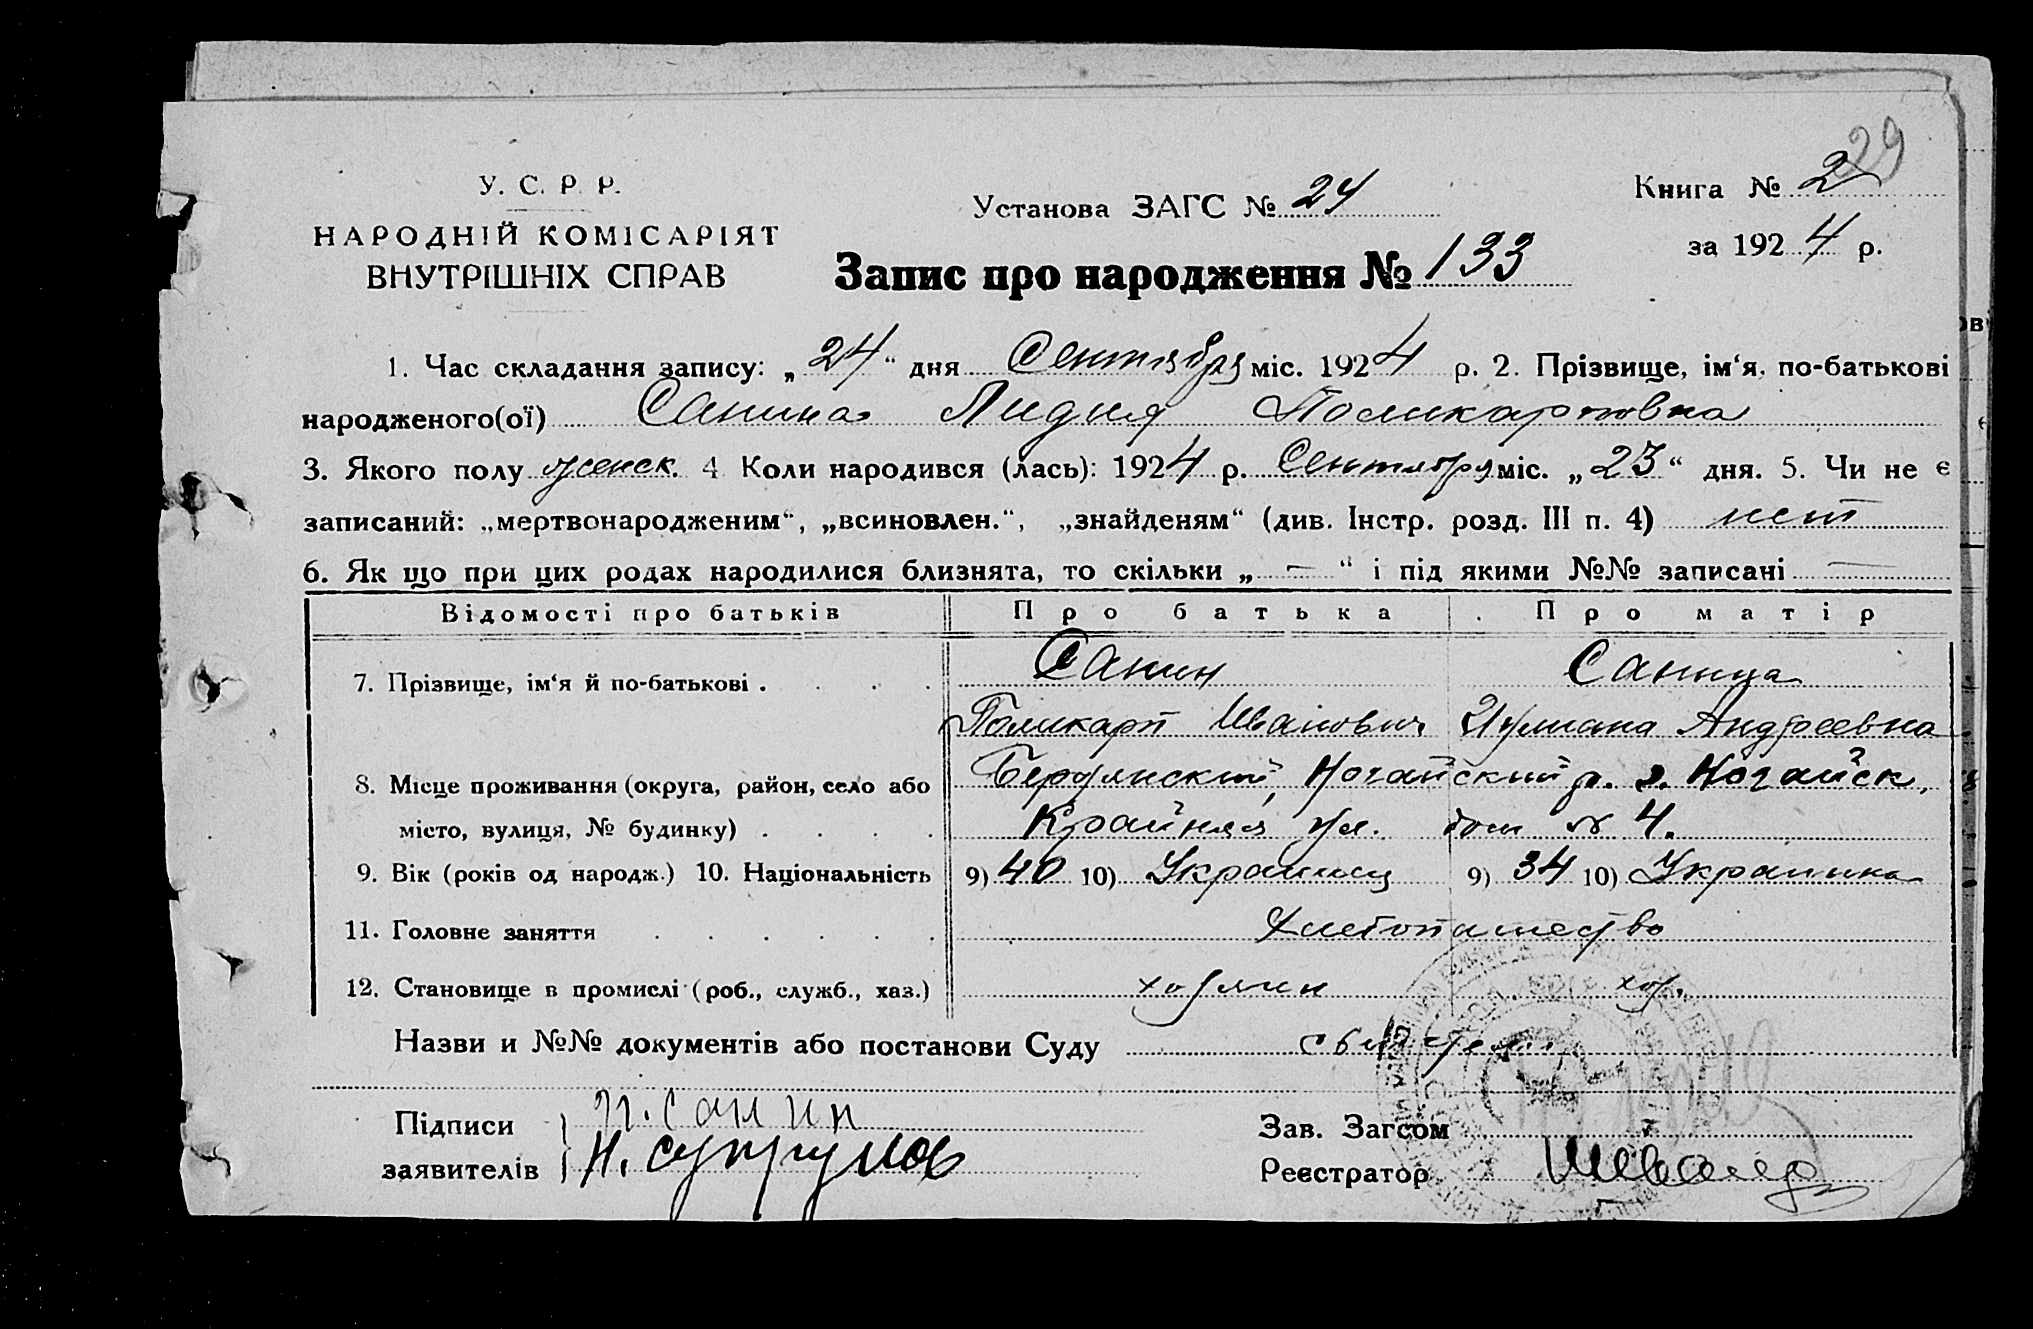 29
У. С. Р. Р.
НАРОДНІЙ КОМІСАРІЯТ
ВНУТРІШНІХ СПРАВ
Установа ЗАГС № 24
Книга № 2
за 1924 р.
Запис про народження № 133
1. Час складання запису: „24“ дня Сентября міс. 1924 р. 2. Прізвище, ім‘я, по-батькові
народженого(ої) Санина Лидия Поликарповна
3. Якого полу женск. 4 Коли народився (лась): 1924 р. Сентября міс. „23“ дня. 5. Чи не є
записаний: „мертвонародженим“, „всиновлен.“, „знайденям“ (див. Інстр. розд. III п. 4) нет
6. Як що при цих родах народилися близнята, то скільки „ — “ і під якими №№ записані —
Відомості про батьків Про батька Про матір
7. Прізвище, ім‘я й по-батькові . Санин Санина
Поликарп Иванович Ульяна Андреевна
8. Місце проживання (округа, район, село або Бердянский, Ногайский р. г. Ногайск,
місто, вулиця, № будинку) . Крайняя ул. дом № 4.
9. Вік (років од народж.) 10. Національність 9) 40 10) Украинец 9) 34 10) Украинка
11. Головне заняття Хлебопашество
12. Становище в промислі (роб., служб., хаз.) хозяин хоз.
Назви и №№ документів або постанови Суду
Підписи П. Санин
заявителів Н. Супрунов
Зав. Загсом
Реєстратор